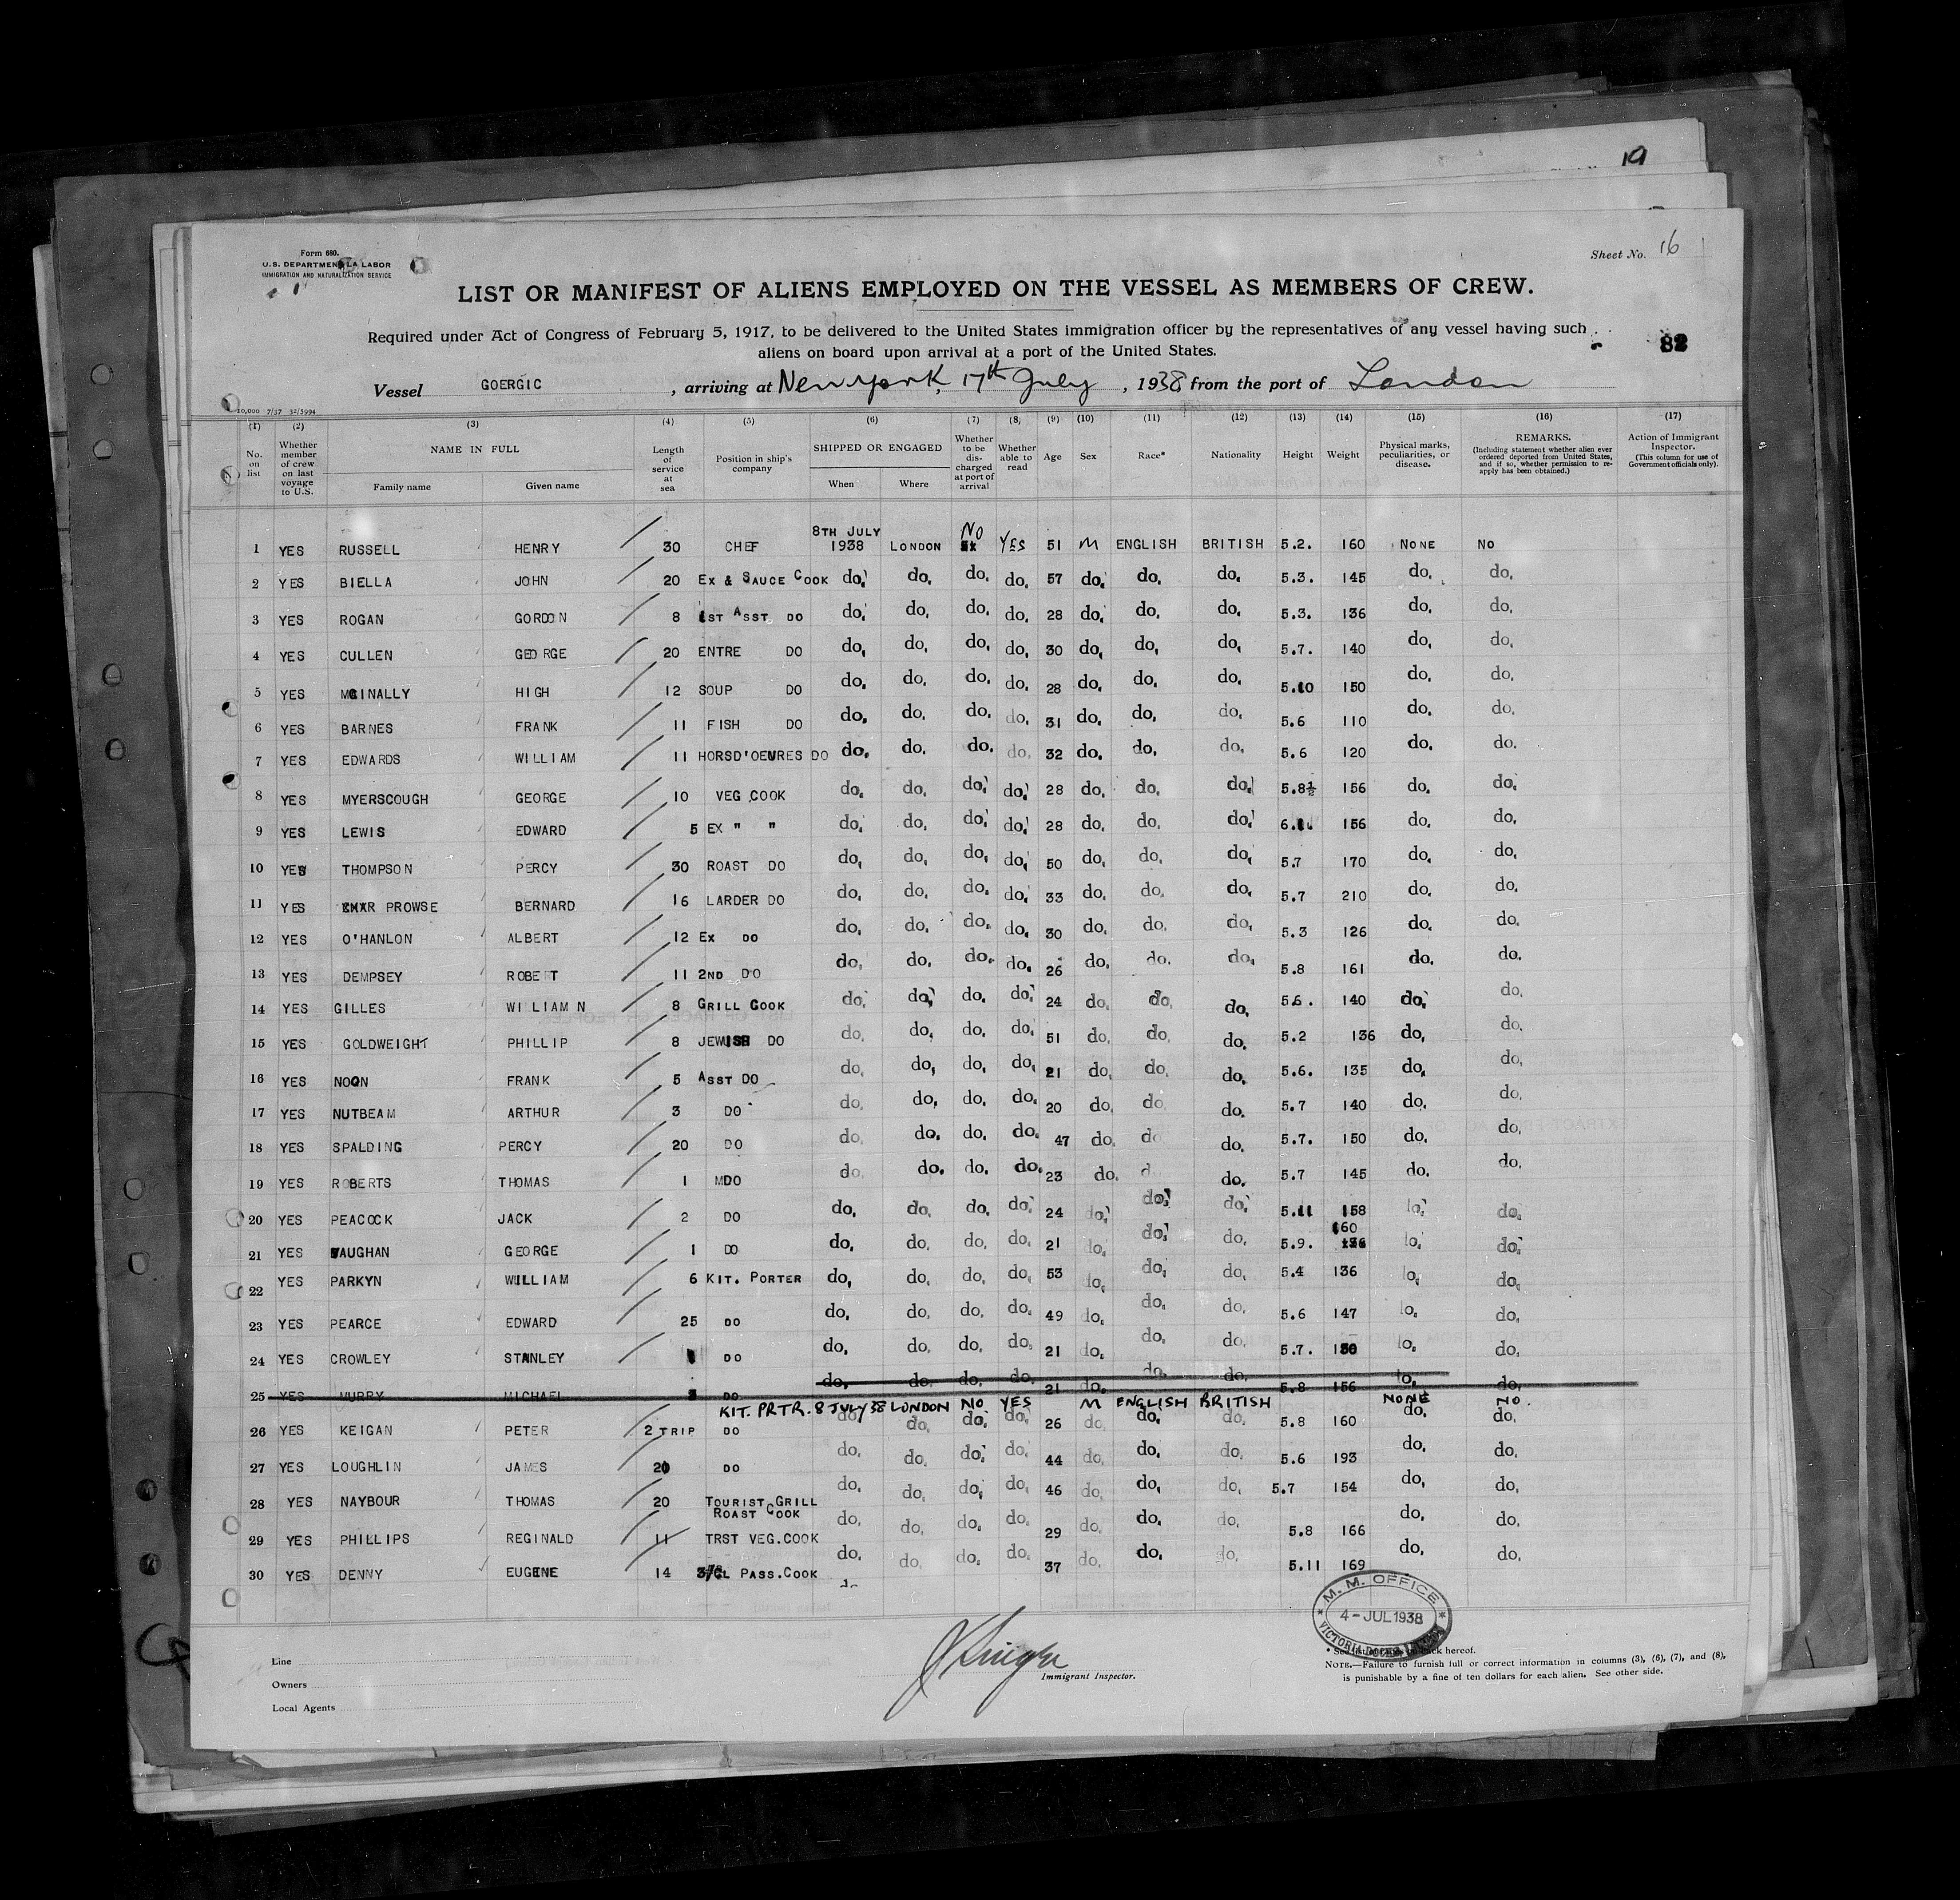 19
Form 680.
U.S. DEPARTMENT LA LABOR
IMMIGRATION AND NATURALIZATION SERVICE
Sheet No. 16
LIST OR MANIFEST OF ALIENS EMPLOYED ON THE VESSEL AS MEMBERS OF CREW.
Required under Act of Congress of February 5, 1917, to be delivered to the United States immigration officer by the representatives of any vessel having such
aliens on board upon arrival at a port of the United States.
82
Vessel GOERGIC , arriving at New York, 17th July , 1938 from the port of London
10,000 7/37 32/5994
(1) (2) (3) (4) (5) (6) (7) (8) (9) (10) (11) (12) (13) (14) (15) (16) (17)
No. on list
Whether member of crew on last voyage to U.S.
NAME IN FULL
Family name
Given name
Length of service at sea
Position in ship's company
SHIPPED OR ENGAGED
When
Where
Whether to be discharged at port of arrival
Whether able to read
Age
Sex
Race*
Nationality
Height
Weight
Physical marks, peculiarities, or disease.
REMARKS.
(Including statement whether alien ever ordered deported from United States, and if so, whether permission to reapply has been obtained.)
Action of Immigrant Inspector.
(This column for use of Government officials only).
8TH JULY NO
1 YES RUSSELL HENRY 30 CHEF 1938 LONDON YES 51 M ENGLISH BRITISH 5.2. 160 NONE NO
2 YES BIELLA JOHN 20 EX & SAUCE COOK do. do. do. do. 57 do. do. do. 5.3. 145 do. do.
3 YES ROGAN GORDON 8 1ST ASST DO do. do. do. do. 28 do. do. do. 5.3. 136 do. do.
4 YES CULLEN GEORGE 20 ENTRE DO do. do. do. do. 30 do. do. do. 5.7. 140 do. do.
5 YES MCINALLY HIGH 12 SOUP DO do. do. do. do. 28 do. do. do. 5.10 150 do. do.
6 YES BARNES FRANK 11 FISH DO do. do. do. do. 31 do. do. do. 5.6 110 do. do.
7 YES EDWARDS WILLIAM 11 HORSD'OEURES DO do. do. do. do. 32 do. do. do. 5.6 120 do. do.
8 YES MYERSCOUGH GEORGE 10 VEG COOK do. do. do. do. 28 do. do. do. 5.8½ 156 do. do.
9 YES LEWIS EDWARD 5 EX " " do. do. do. do. 28 do. do. do. 156 do. do.
10 YES THOMPSON PERCY 30 ROAST DO do. do. do. do. 50 do. do. do. 5.7 170 do. do.
11 YES PROWSE BERNARD 16 LARDER DO do. do. do. do. 33 do. do. do. 5.7 210 do. do.
12 YES O'HANLON ALBERT 12 EX DO do. do. do. do. 30 do. do. do. 5.3 126 do. do.
13 YES DEMPSEY ROBERT 11 2ND DO do. do. do. do. 26 do. do. do. 5.8 161 do. do.
14 YES GILLES WILLIAM N 8 GRILL COOK do. do. do. do. 24 do. do. do. 5.6. 140 do. do.
15 YES GOLDWEIGHT PHILLIP 8 JEWISH DO do. do. do. do. 51 do. do. do. 5.2 136 do. do.
16 YES NOON FRANK 5 ASST DO do. do. do. do. 21 do. do. do. 5.6. 135 do. do.
17 YES NUTBEAM ARTHUR 3 DO do. do. do. do. 20 do. do. do. 5.7 140 do. do.
18 YES SPALDING PERCY 20 DO do. do. do. do. 47 do. do. do. 5.7. 150 do. do.
19 YES ROBERTS THOMAS 1 MDO do. do. do. do. 23 do. d do. 5.7 145 do. do.
20 YES PEACOCK JACK 2 DO do. do. do. do. 24 do. do. do. 5.11 158 do. do.
160
21 YES VAUGHAN GEORGE 1 DO do. do. do. do. 21 do. do. do. 5.9. 136 do. do.
22 YES PARKYN WILLIAM 6 KIT. PORTER do. do. do. do. 53 do. do. do. 5.4 136 do. do.
23 YES PEARCE EDWARD 25 DO do. do. do. do. 49 do. do. do. 5.6 147 do. do.
24 YES CROWLEY STANLEY DO do. do. do. do. 21 do. do. do. 5.7. do. do.
25 YES MURRY MICHAEL 3 DO do. do. do. do. 21 do. do. do. 5.8 156 do. do.
KIT. PRTR. 8 JULY 38 LONDON NO YES M ENGLISH BRITISH NONE NO
26 YES KEIGAN PETER 2 TRIP DO do. do. do. do. 26 do. do. do. 5.8 160 do. do.
27 YES LOUGHLIN JAMES 20 DO do. do. do. do. 44 do. do. do. 5.6 193 do. do.
28 YES NAYBOUR THOMAS 20 TOURIST GRILL do. do. do. do. 46 do. do. do. 5.7 154 do. do.
ROAST COOK
29 YES PHILLIPS REGINALD 11 TRST VEG.COOK do. do. do. do. 29 do. do. do. 5.8 166 do. do.
30 YES DENNY EUGENE 14 3/CL PASS.COOK do. do. do. do. 37 do. do. do. 5.11 169 do. do.
M. M. OFFICE
4 - JUL 1938
VICTORIA DOCKS
Line
Owners
Local Agents
Immigrant Inspector.
* See back hereof.
NOTE.—Failure to furnish full or correct information in columns (3), (6), (7), and (8),
is punishable by a fine of ten dollars for each alien. See other side.